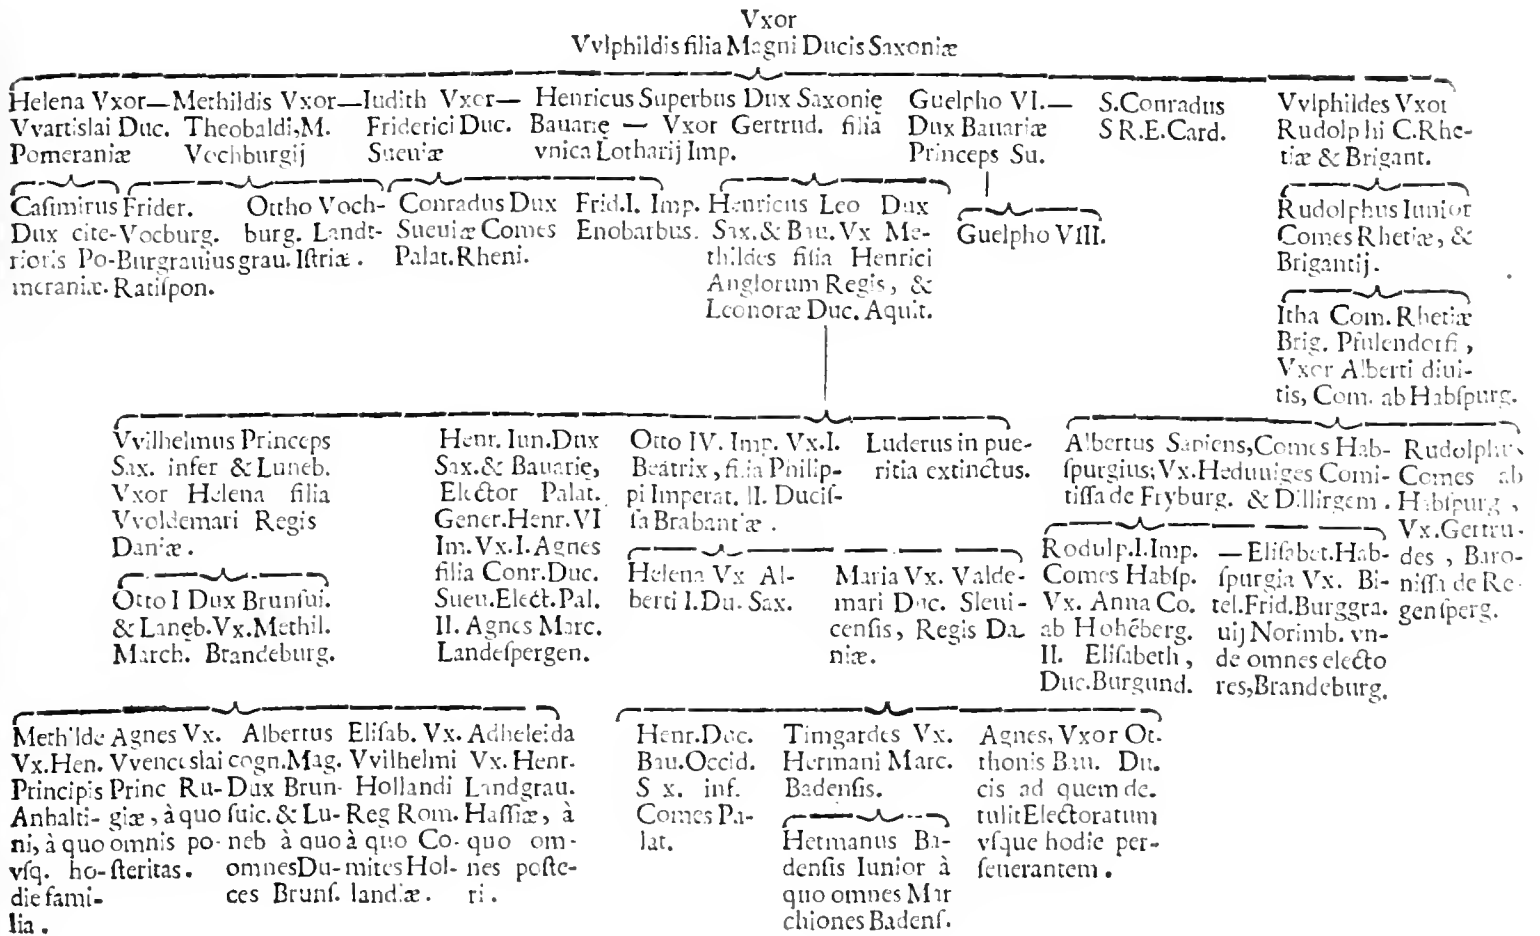 Vxor
Vvlphildis filia Magni Ducis Saxoniæ
Helena Vxor—
Vvartislai Duc.
Pomeraniæ
Methildis Vxor—
Theobaldi, M.
Vochburgij
Iudith Vxor—
Friderici Duc.
Sueuiæ
Henricus Superbus Dux Saxonię
Bauarię — Vxor Gertrud. filia
vnica Lotharij Imp.
Guelpho VI.—
Dux Bauariæ
Princeps Su.
S. Conradus
S R. E. Card.
Vvlphildes Vxor
Rudolphi C. Rhe-
tiæ & Brigant.
Caſimirus
Dux cite-
rioris Po-
meraniæ.
Frider.
Vocburg.
Burgrauius
Ratiſpon.
Ottho Voch-
burg. Landt-
grau. Iſtriæ.
Conradus Dux
Sueuiæ Comes
Palat. Rheni.
Frid. I. Imp.
Enobarbus.
Henricus Leo Dux
Sax. & Bau. Vx Me-
thildes filia Henrici
Anglorum Regis, &
Leonoræ Duc. Aquit.
Guelpho VIII.
Rudolphus Iunior
Comes Rhetiæ, &
Brigantij.
Itha Com. Rhetiæ
Brig. Pfulendorfi,
Vxor Alberti diui-
tis, Com. ab Habſpurg.
Vvilhelmus Princeps
Sax. infer & Luneb.
Vxor Helena filia
Vvoldemari Regis
Daniæ.
Henr. Iun. Dux
Sax. & Bauarię,
Elector Palat.
Gener. Henr. VI
Im. Vx. I. Agnes
filia Conr. Duc.
Sueu. Elect. Pal.
II. Agnes Marc.
Landeſpergen.
Otto IV. Imp. Vx. I.
Beatrix, filia Philip-
pi Imperat. II. Duciſ-
ſa Brabantiæ.
Luderus in pue-
ritia extinctus.
Albertus Sapiens, Comes Hab-
ſpurgius; Vx. Heduuiges Comi-
tiſſa de Fryburg. & Dillirgem.
Rudolphus
Comes ab
Habſpurg,
Vx. Gertru-
des, Baro-
niſſa de Re-
genſperg.
Otto I Dux Brunſui.
& Lanęb. Vx. Methil.
March. Brandeburg.
Helena Vx Al-
berti I. Du. Sax.
Maria Vx. Valde-
mari Duc. Sleui-
cenſis, Regis Da-
niæ.
Rodulp. I. Imp.
Comes Habſp.
Vx. Anna Co.
ab Hohēberg.
II. Eliſabeth,
Duc. Burgund.
— Eliſabet. Hab-
ſpurgia Vx. Bi-
tel. Frid. Burggra.
uij Norimb. vn-
de omnes electo
res, Brandeburg.
Methilde
Vx. Hen.
Principis
Anhalti-
ni, à quo
vſq. ho-
die fami-
lia.
Agnes Vx.
Vvenceslai
Princ Ru-
giæ, à quo
omnis po-
ſteritas.
Albertus
cogn. Mag.
Dux Brun-
ſuic. & Lu-
neb à quo
omnes Du-
ces Brunſ.
Eliſab. Vx.
Vvilhelmi
Hollandi
Reg Rom.
à quo Co-
mites Hol-
landiæ.
Adheleida
Vx. Henr.
Landgrau.
Haſſiæ, à
quo om-
nes poſte-
ri.
Henr. Duc.
Bau. Occid.
S x. inf.
Comes Pa-
lat.
Timgardes Vx.
Hermani Marc.
Badenſis.
Hetmanus Ba-
denſis Iunior à
quo omnes Mar
chiones Badenſ.
Agnes, Vxor Ot.
thonis Bau. Du.
cis ad quem de.
tulit Electoratum
vſque hodie per-
ſeuerantem.